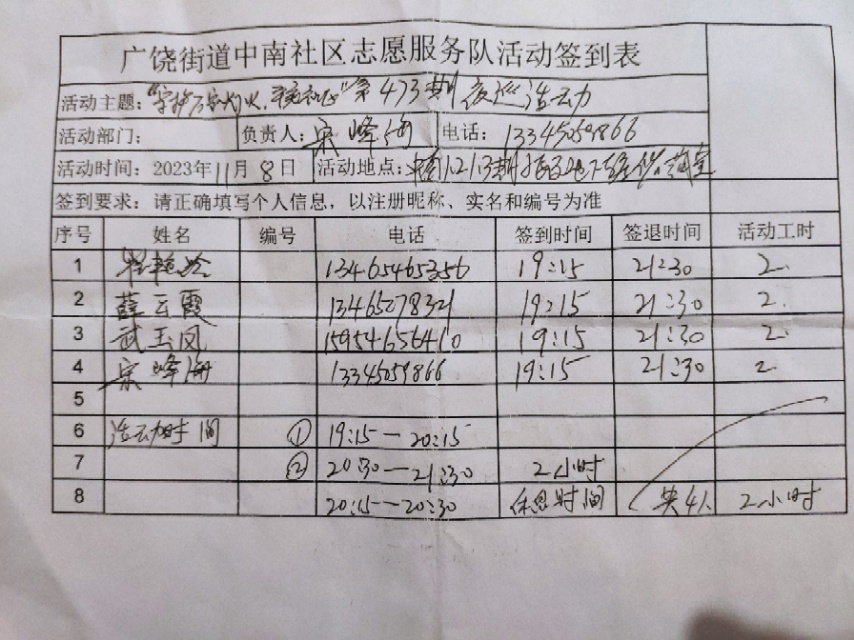 广饶街道中南社区志愿服务队活动签到表
活动主题：“守护万家灯火，平安和谐”第473期夜巡活动
活动部门： 负责人：宋峰海 电话：13345059866
活动时间：2023年11月8日 活动地点：中南1.2.13期
签到要求：请正确填写个人信息，以注册昵称、实名和编号为准
序号 姓名 编号 电话 签到时间 签退时间 活动工时
1 13465465356 19:15 21:30 2.
2 薛云霞 13465278321 19:15 21:30 2.
3 武玉凤 15954656410 19:15 21:30 2.
4 宋峰海 13345059866 19:15 21:30 2.
5
6 活动时间 ① 19:15—20:15
7 ② 20:30—21:30 2小时
8 20:15—20:30 休息时间 共4人 2小时